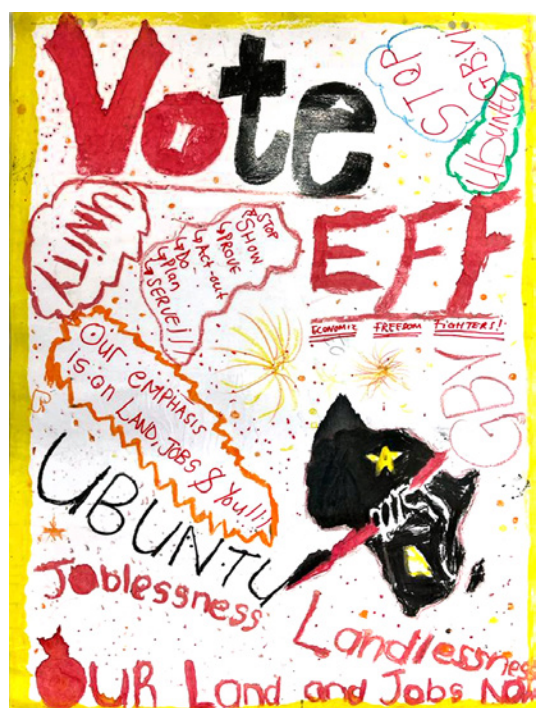 Vote
STOP
GBV!
Ubuntu
UNITY
STOP
SHOW
PROVE
ACT-OUT
DO
Plan
SERVE!!
EFF
ECONOMIC FREEDOM FIGHTERS!
OUR EMPHASIS
is on LAND, JOBS & You!!!
GBV
UBUNTU
Joblessness
Landlessness
OUR Land and Jobs Now